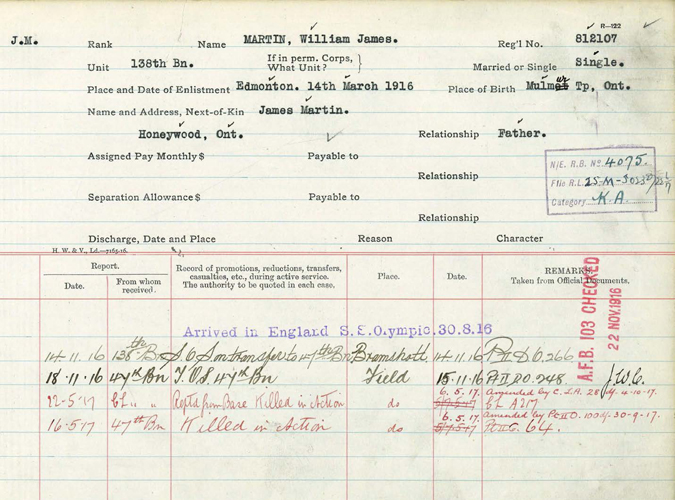 R-122
J.M. Rank Name MARTIN, William James. Reg'l No. 812107
Unit 138th Bn. If in perm. Corps, What Unit? } Married or Single Single.
Place and Date of Enlistment Edmonton. 14th March 1916 Place of Birth Mulmur Tp, Ont.
Name and Address, Next-of-Kin James Martin.
Honeywood, Ont. Relationship Father.
Assigned Pay Monthly $ Payable to
Relationship
N/E. R.B. No 4075.
File R.L. 25-M-
Category K.A.
Separation Allowance $ Payable to
Relationship
Discharge, Date and Place Reason Character
H. W. & V., Ld.—7165-16.
Report. Record of promotions, reductions, transfers, casualties, etc., during active service. The authority to be quoted in each case. Place. Date. REMARKS. Taken from Official Documents.
Date. From whom received.
A.F.B. 103 CHECKED
22 NOV. 1916
Arrived in England S.S.Olympic.30.8.16
14.11.16 138th Bn S.O.S on transfer to 47th Bn Bramshott. 14.11.16 Pt II D.O. 266
18.11.16 47th Bn T.O.S. 47th Bn Field 15.11.16 Pt II D.O. 248. J.W.C.
6.5.17. amended by C.L. A. 28 4-10-17.
22-5-17 CL " " Reptd from Base Killed in Action do CL A217
6.5.17. amended by Pt II O. 100 30-9-17.
16.5.17 47th Bn Killed in Action do Pt II O. 64.